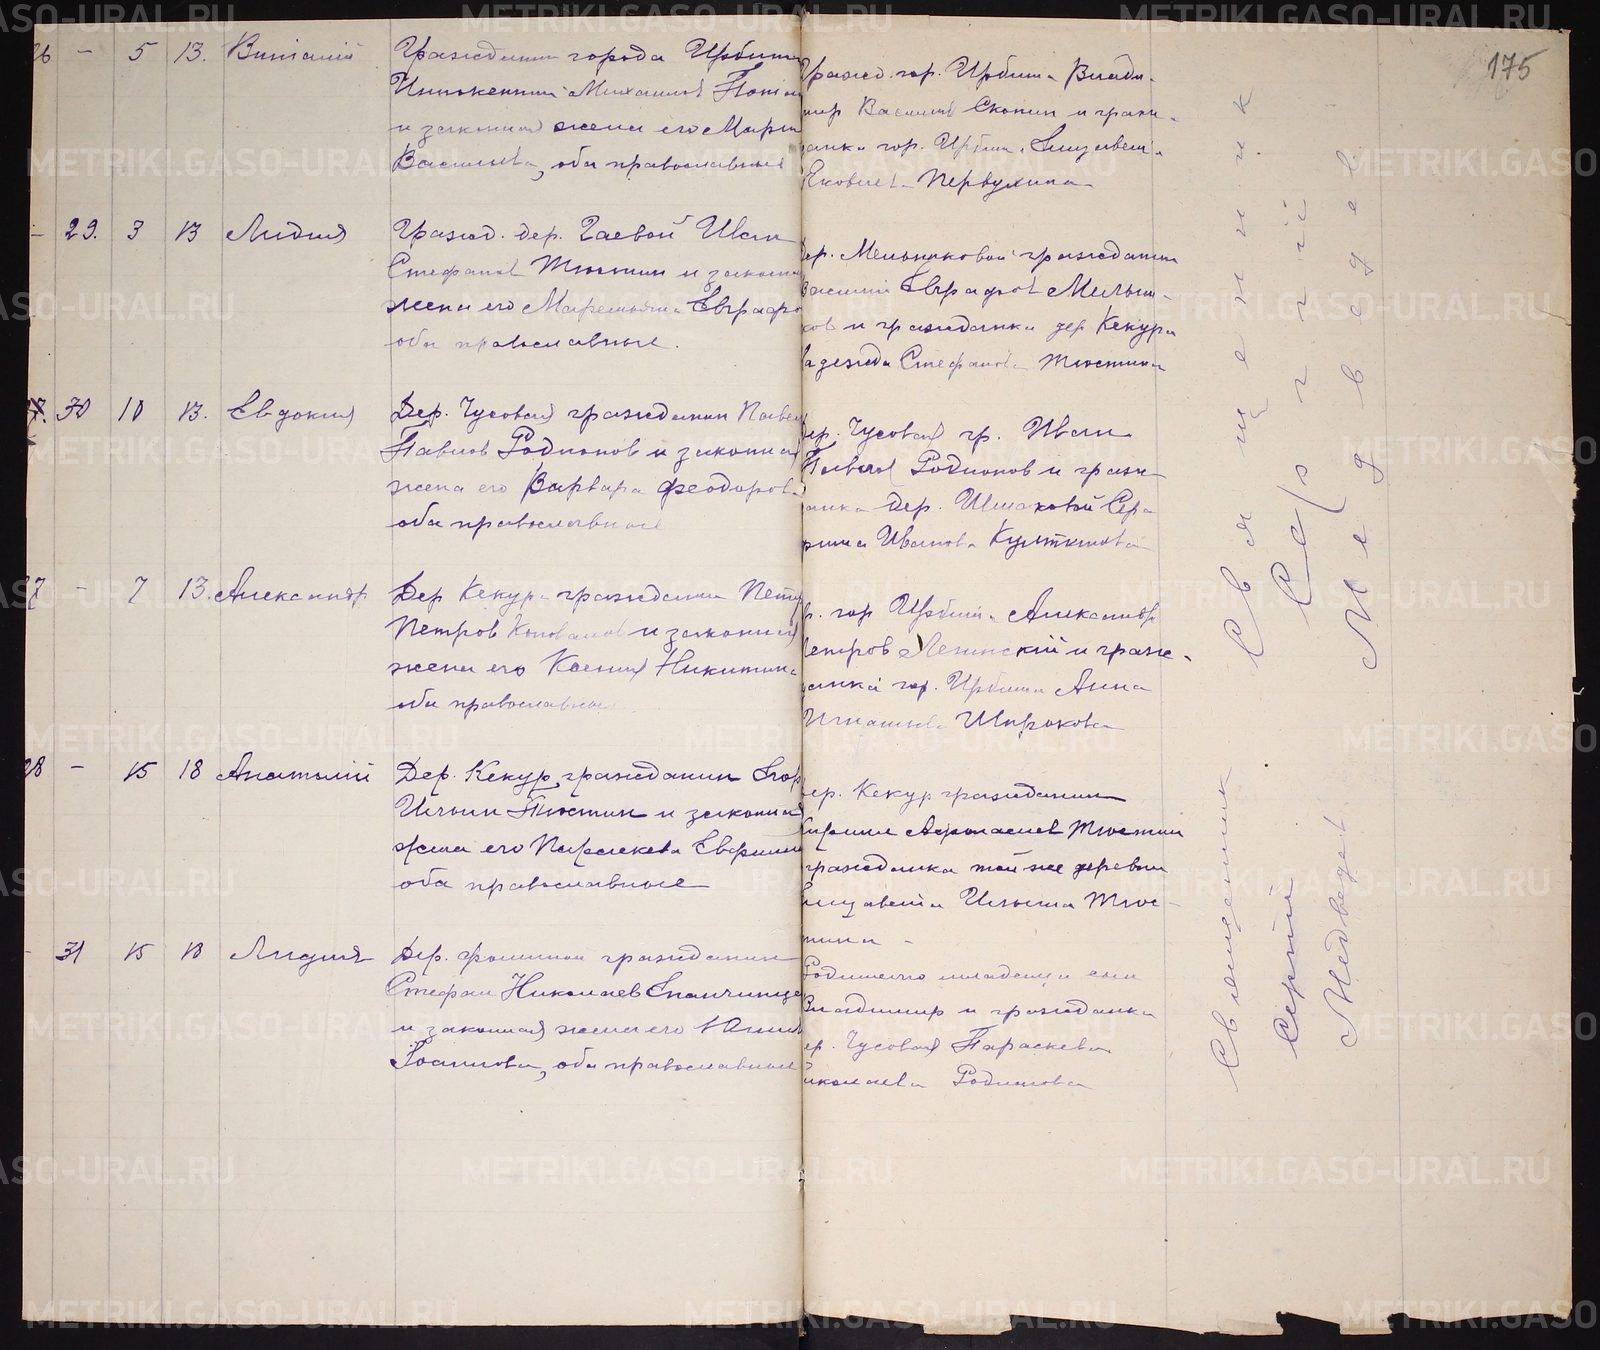 175
26 - 5 13. Виталий
Гражданин города Ирбита
Иннокентий Михаилов
и законная жена его Мария
Васильева, оба православные
Гражд. гор. Ирбита Влади-
мир Василиев Скопин и граж-
данка гор. Ирбита Елизавета
Яковлева Первухина
- 29. 3 13 Лидия
Гражд. дер. Гаевой Иван
Стефанов Тюстин и законная
жена его Маремьяна Евграфо
оба православные.
дер. Мельниковой гражданин
Василий Евграфов Мельни-
ков и гражданка дер Кекура
Надежда Стефанова Тюстина
30 10 13. Евдокия
Дер. Чусовая гражданин Павел
Павлов Родионов и законная
жена его Варвара Феодорова
оба православные
дер. Чусовая гр. Иван
Павлов Родионов и граж-
данка дер. Шмаковой Сера-
фима Иванова
27 - 7 13. Александр
Дер Кекура гражданин Петр
Петров Коновалов и законная
жена его Ксения Никитина
оба православные
гр. гор Ирбита Александр
Петров Ленинский и граж-
данка гор. Ирбита Анна
Игнатьева Широкова
28 - 15 18 Анатолий
Дер. Кекур гражданин Егор
Ильин Тюстин и законная
жена его Параскева
оба православные
дер. Кекур гражданин
Кирилл Афанасиев Тюстин
гражданка той же деревни
Елизавета Ильина Тюс-
тина -
- 31 15 18 Лидия
Дер. Фоминой гражданин
Стефан Николаев Епанчинцев
и законная жена его
Иоаннова, оба православные
Родителю младенца сын
Владимир и гражданка
дер. Чусовая Параскева
Николаева Родионова
Священник
Сергий
Медведев
Священник
Сергий
Медведев
METRIKI.GASO-URAL.RU